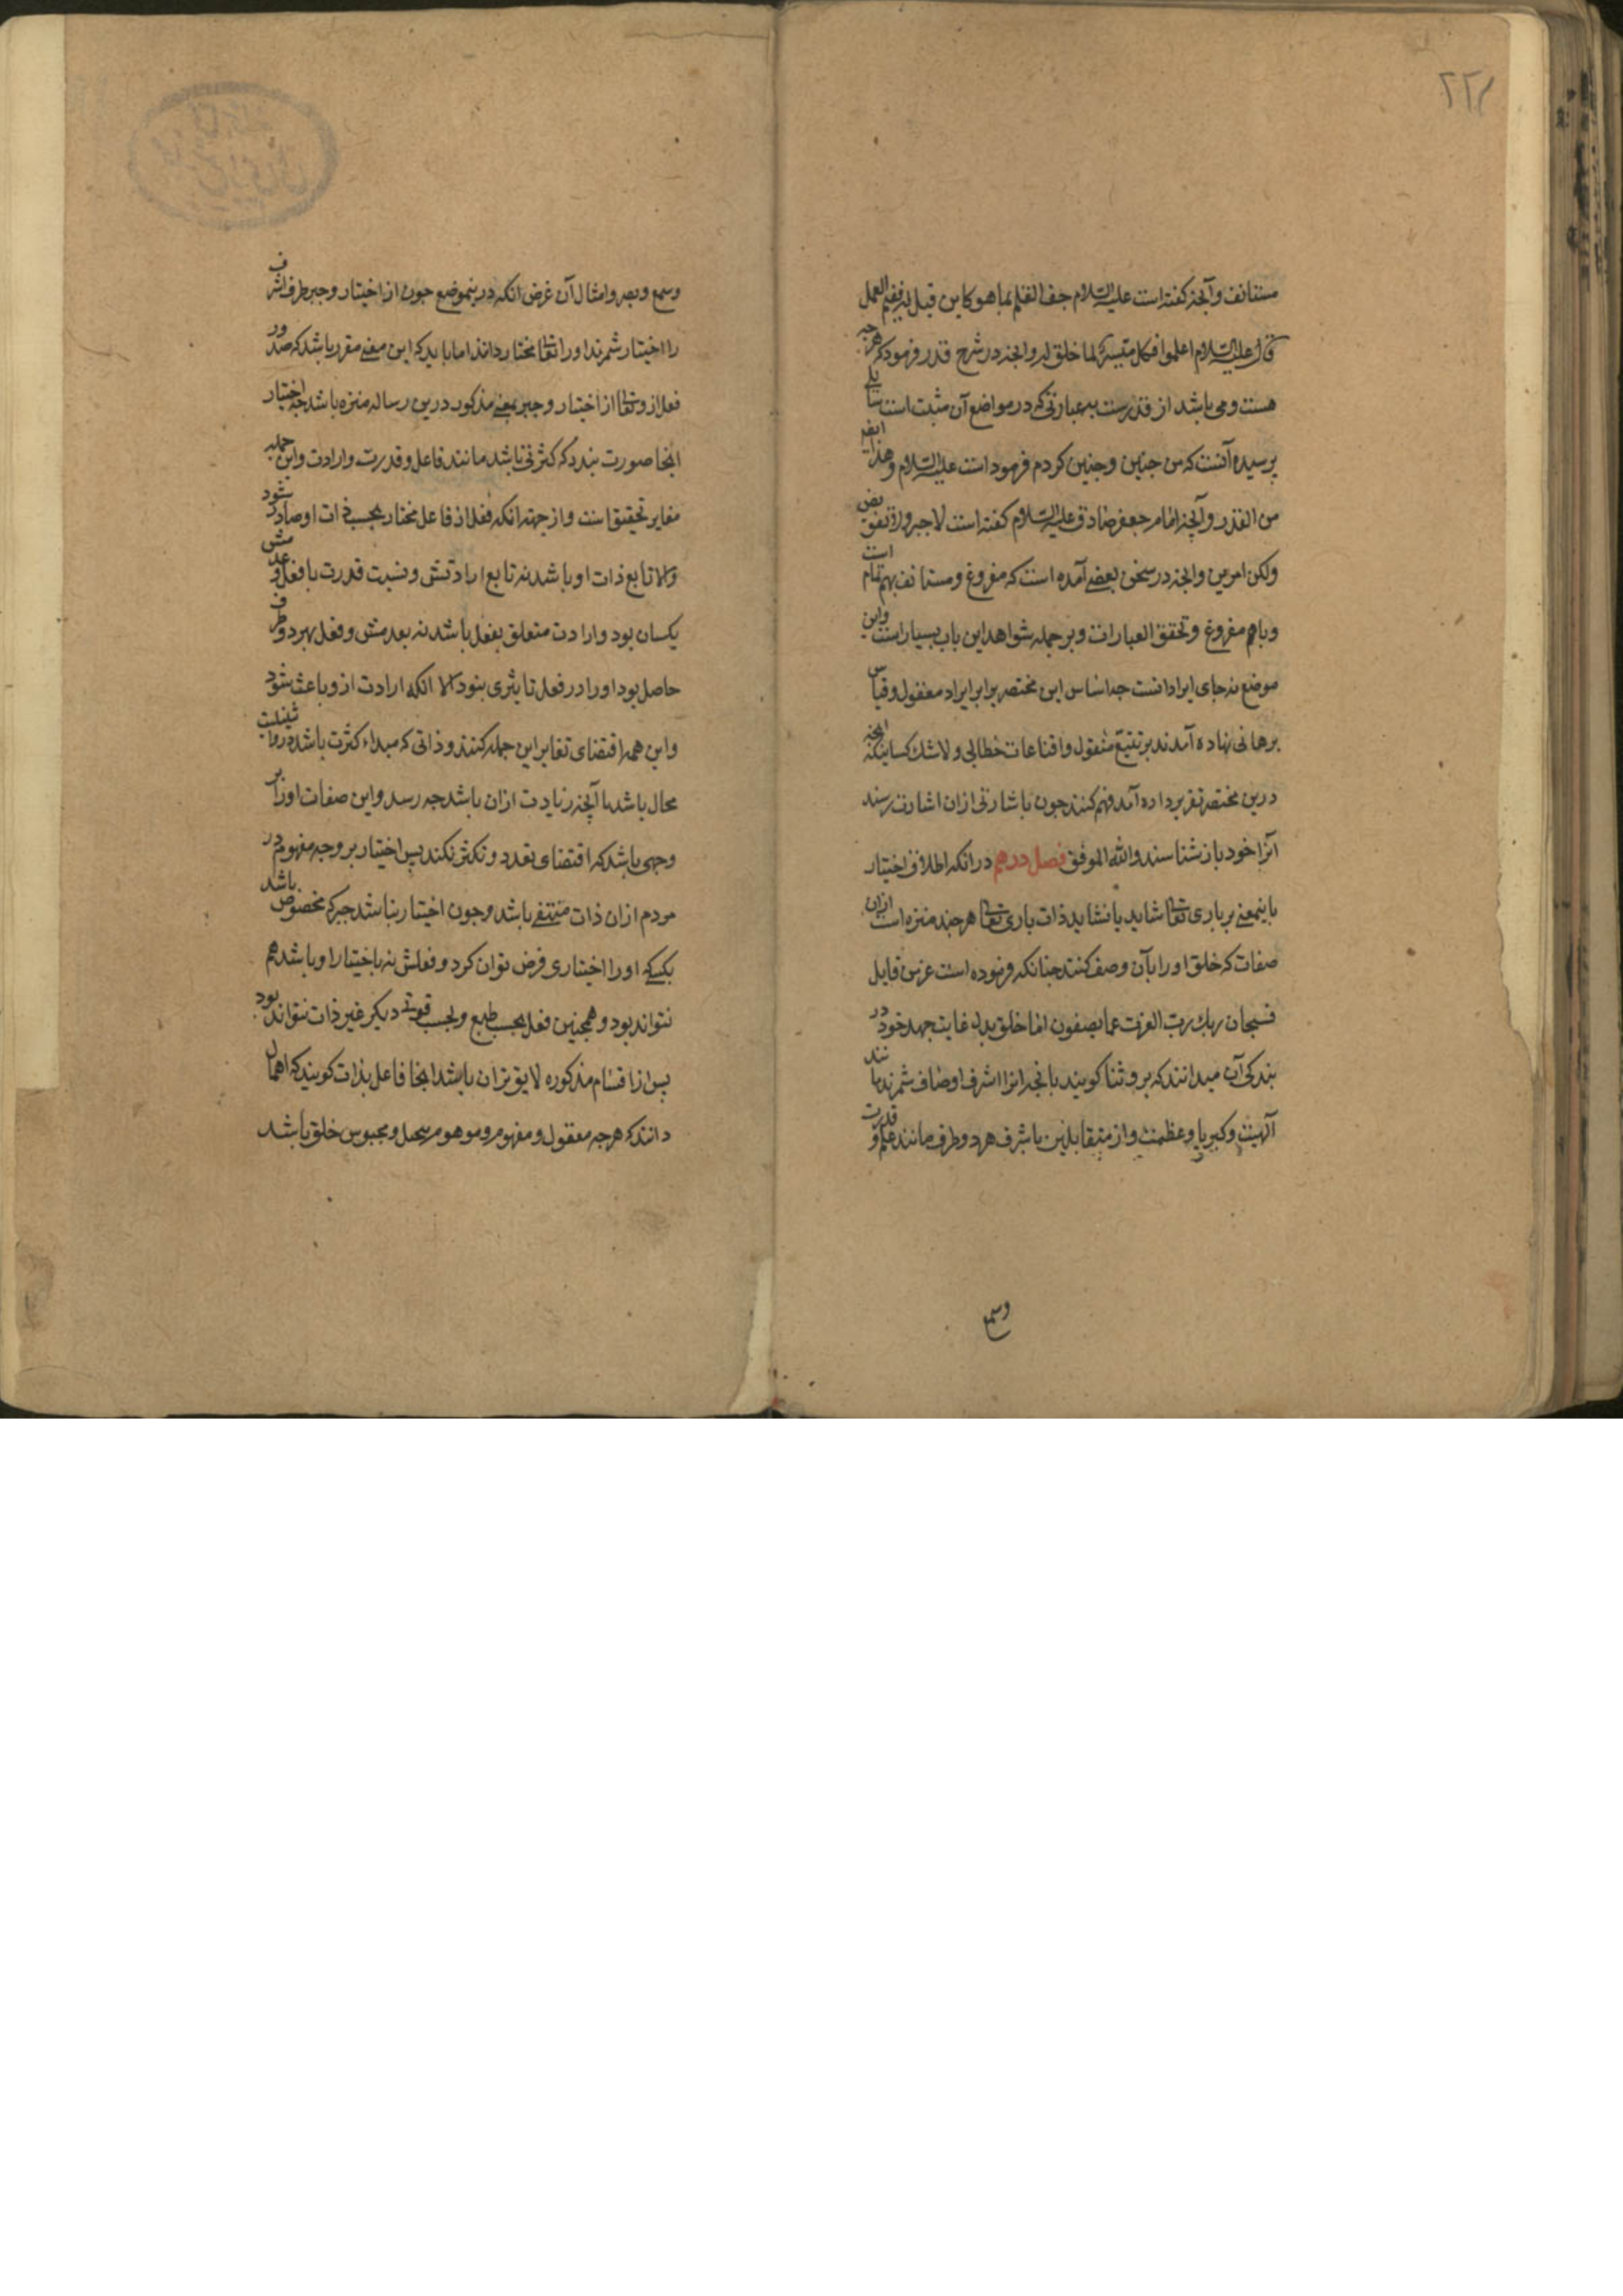 ۲۲۱
مستانف و آنچه گفته است علیه السلام جف القلم بما هو کاین قبل له ففیم العمل
قال علیه السلام اعلموا فکل میسر لما خلق له و انچه در شرح قدر فرمود که هرچه
هست و می باشد از قدرست بهر عبارتی که در مواضع آن مثبت است سایلی
پرسیده آنست که من چنین و چنین کردم فرمود است علیه السلام و هذا ایضا
من القدر و آنچه امام جعفر صادق علیه السلام گفته است لا جبر ولا تفویض
ولکن امر بین و انچه در سخن بعضی آمده است که مفروغ و مستانف بهم تمام است
و باهم مفروغ و تحقق العبارات و بر جمله شواهد این باب بسیار است و این
موضع نه جای ایراد انست چه اساس این مختصر بر ایراد معقول و قیاس
برهانی نهاده آمد نه بر تتبع منقول و اقناعات خطابی و لا شک کسانیکه انچه
درین مختصر تقریر داده آمد فهم کنند چون باشارتی ازان اشارت رسند
آنرا خود باز شناسند والله الموفق فصل دهم در انکه اطلاق اختیار
باین معنی بر باری تعالی شاید یا نشاید ذات باری تعالی هر چند منزه است ازان
صفات که خلق او را بآن وصف کنند چنانکه فرموده است عز من قایل
فسبحان ربک رب العزت عما یصفون اما خلق بدل غایت جهد خود در
بندگی آن میدانند که برو ثنا گویند بانچه انرا اشرف اوصاف شمرند مانند
آلهیت و کبریا و عظمت و از متقابلین باشرف هر دو طرف مانند علم و قدرت
وسمع
وسمع و بصر و امثال آن غرض انکه درینموضع چون از اختیار و جبر طرف اشرف
را اختیار شمرند او را تعالی مختار دانند اما باید که این معنی مقرر باشد که صدور
فعل ازو تعالی از اختیار و جبر بمعنی مذکور درین رساله منزه باشد چه اختیار
اینجا صورت بندد که کثرتی باشد مانند فاعل و قدرت و ارادت و این جمله
مغایر تحقیق است و از جهته انکه فعل از فاعل مختار بحسب ذات او صادر شود
والا تابع ذات او باشد نه تابع ارادتش و نسبت قدرت با فعل و عدمش
یکسان بود و ارادت متعلق بفعل باشد نه بعدمش و فعل بهر دو طرف
حاصل بود او را در فعل تاثیری نبود الا انکه ارادت ازو باعث شود
و این همه اقتضای تغایر این جمله کنند و ذاتی که مبداء کثرت باشد درو اثنینیت
محال باشد تا آنچه زیادت ازان باشد چه رسد و این صفات او را بر
وجهی باشد که اقتضای تعدد و تکثر نکند پس اختیار بر وجه مفهوم در
مردم ازان ذات منتفی باشد و چون اختیار نباشد جبر که مخصوص باشد
بکسی که او را اختیاری فرض توان کرد و فعلش نه باختیار او باشد هم
نتواند بود و همچنین فعل بحسب طبع و بحسب قوتی دیگر غیر ذات نتواند بود
پس از اقسام مذکوره لایق تر ان باشد اینجا فاعل بذات گویند که اهمال
دانند که هرچه معقول و مفهوم و موهوم و محبوس خلق باشد